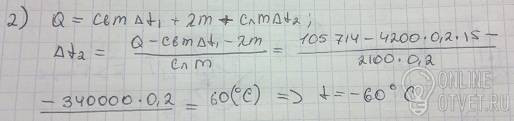 2) Q = cвm Δt₁ + 2m + cлm Δt₂ ;
Δt₂ = Q - cвm Δt₁ - 2m / cлm = 105 714 - 4200 · 0,2 · 15 - / 2100 · 0,2
- 340000 · 0,2 = 60 (°C) => t = -60° C
ONLINE
OTVET.RU